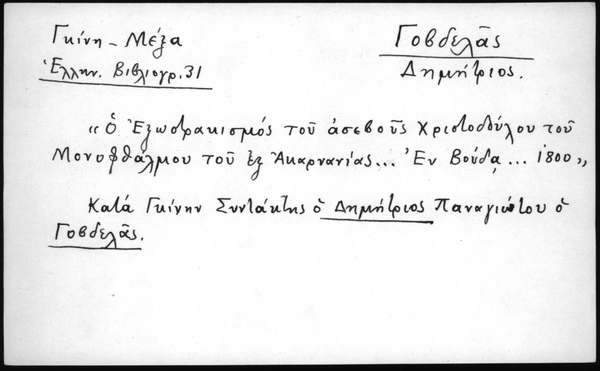 Γκίνη - Μέξα
Ἑλλην. Βιβλιογρ. 31
Γοβδελᾶς
Δημήτριος.
«Ὁ Ἐξωστρακισμός τοῦ ἀσεβοῦς Χριστοδούλου τοῦ
Μονοφθάλμου τοῦ ἐξ Ἀκαρνανίας... Ἐν Βούδᾳ ... 1800»
Κατά Γκίνην Συντάκτης ὁ Δημήτριος Παναγιώτου ὁ
Γοβδελᾶς.